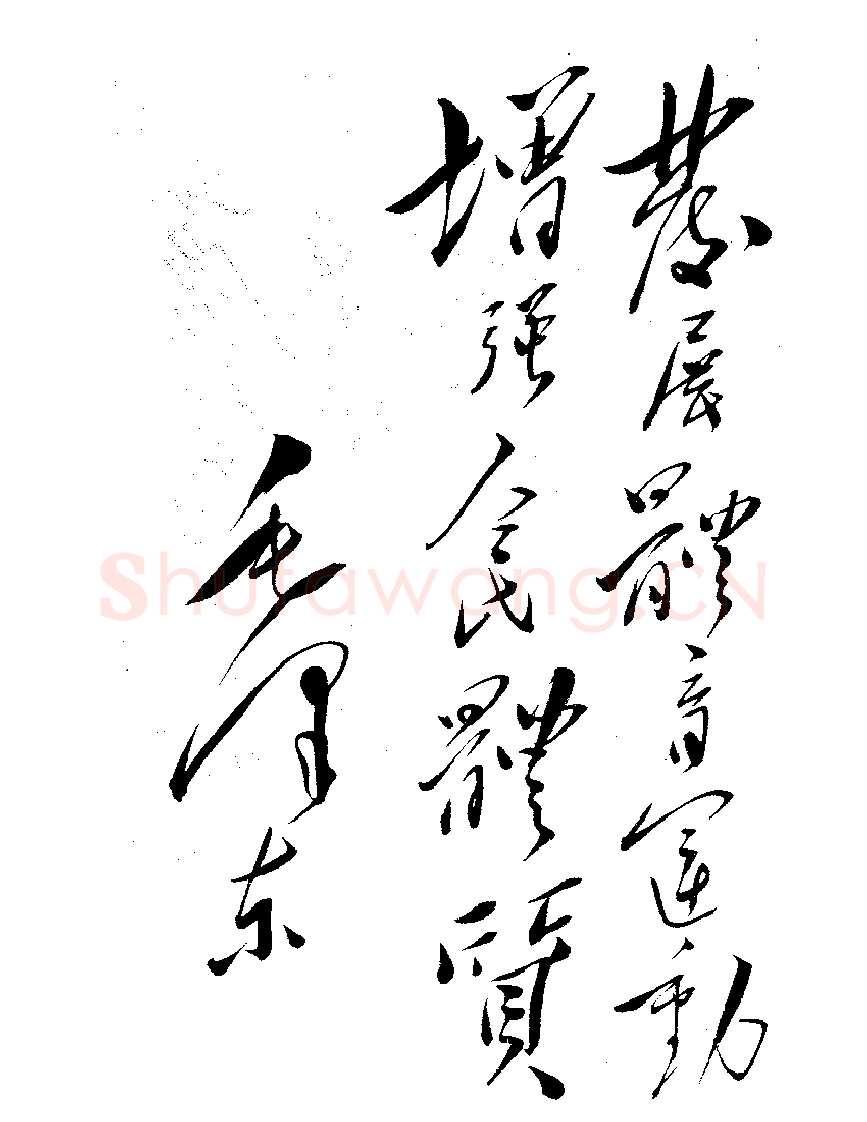 發展體育運動
增强人民體質
毛澤东
Shufawang.CN